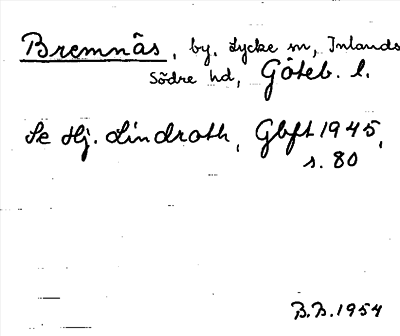 Bremnäs, by. Lycke sn, Inlands
Södre hd, Göteb. l.
Se Hj. Lindroth, Gbft 1945,
s. 80
B.B. 1954